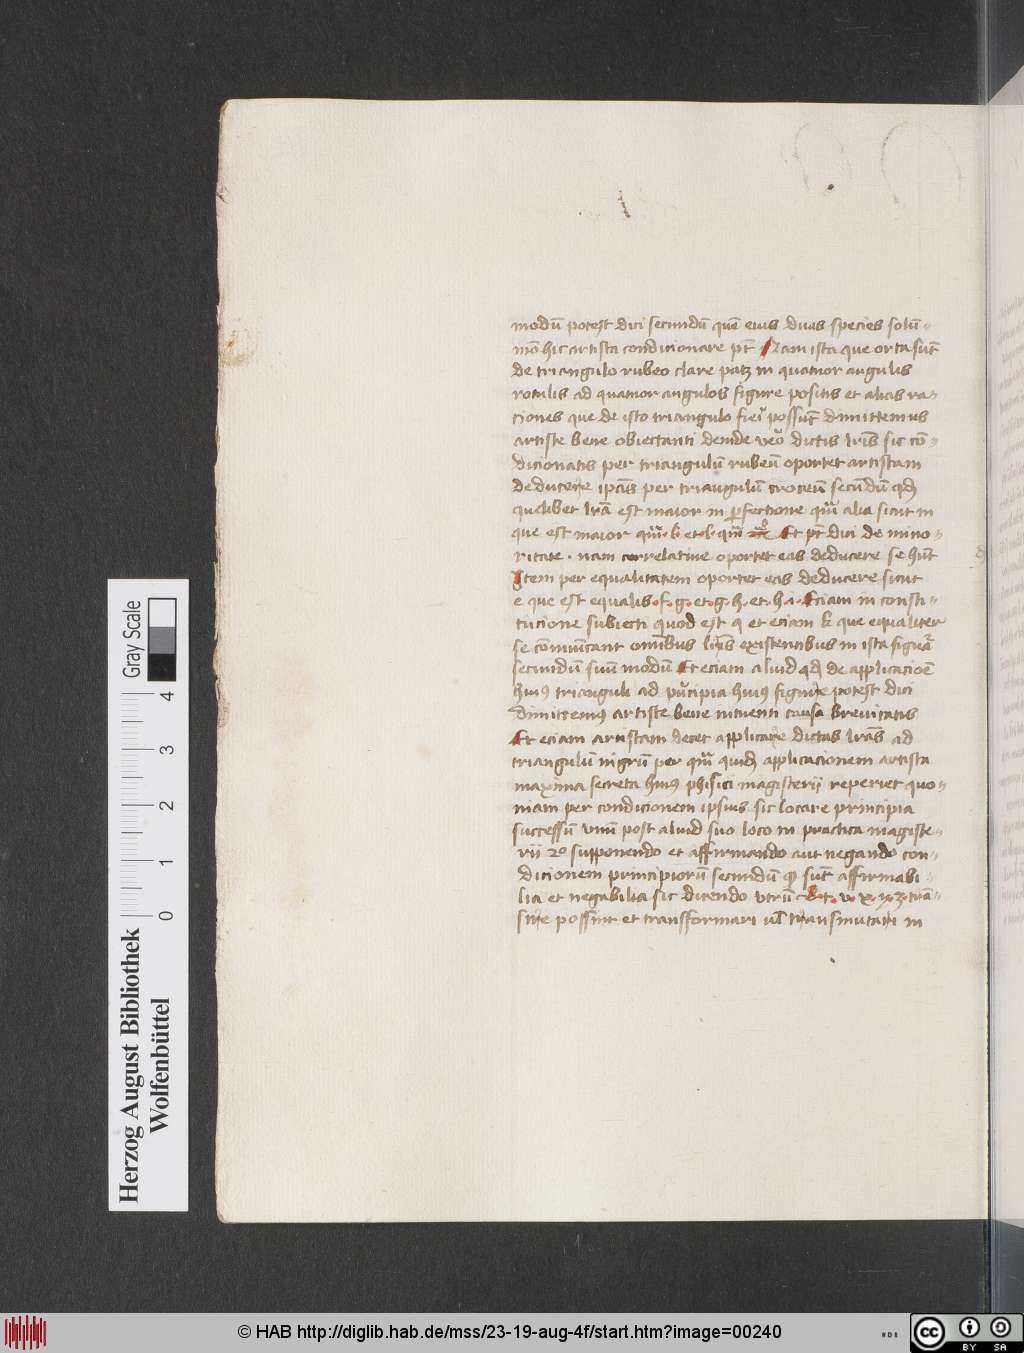 modū potest dici secundū quē eius duas species solū-
mō hic artista condicionare pt̄ Nam ista que orta sūt
de triangulo rubeo clare patz in quatuor angulis
rotulis ad quatuor angulos figure positis et alias ra-
ciones que de isto triangulo fieri possūt dimittemus
artiste bene obiectanti deinde vero dictis lr̄is sic cō-
dicionatis per triangulū rubeū oportet artistam
deducere ipās per triangulū croceū secundū qd
quelibet lr̄a est maior in perfectione quā alia sicut in
que est maior quā · k · et · l · quā Et pt̄ dici de mino-
ritate · nam correlatiue oportet eas deducere se hn̄t
Item per equalitatem oportet eas deducere sicut
e que est equalis · f · g · et · g · h · et · h · i · Eciam in consti-
tucione subiecti quod est q et eciam k que equaliter
se cōmunicant omnibus lr̄is existencibus in ista figura
secundū suū modū Et eciam aliud qd de applicacioē
huius trianguli ad principia huius figure potest dici
dimittemus artiste bene intuenti causa breuitatis
Et eciam artistam decet applicare dictas lr̄as ad
triangulū nigrū per quā quidē applicacionem artista
maxima secreta huius phisici magisterii reperiet quo-
niam per condicionem ipsius sic locare principia
successū vnū post aliud suo loco in practica magiste-
rii supponendo et affirmando aut negando con-
dicionem principiorū secundū qd sūt affirmabi-
lia et negabilia sic dicendo vtrū · t · v · x · y · z · trā-
sire possint et transformari vl̄ transmutari in
Herzog August Bibliothek
Wolfenbüttel
0 1 2 3 4
Gray Scale
© HAB http://diglib.hab.de/mss/23-19-aug-4f/start.htm?image=00240
WDB
cc BY SA